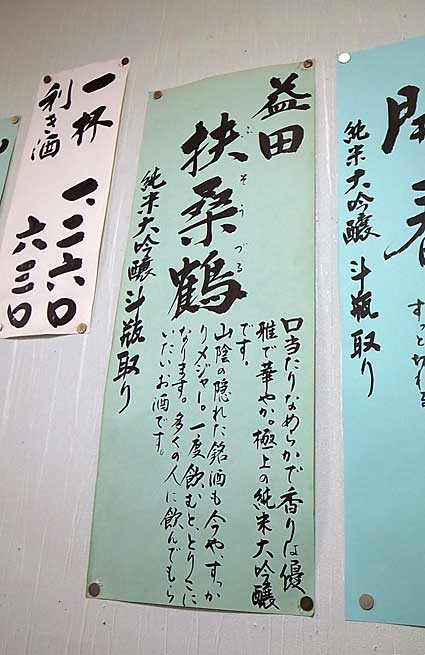 開春
純米大吟醸 斗瓶取り
益田
扶桑鶴
ふそうづる
純米大吟醸 斗瓶取り
口当たりなめらかで香りは優
雅で華やか。極上の純米大吟醸
です。
山陰の隠れた銘酒も今や、すっか
りメジャー。一度飲むと、とりこに
なります。多くの人に飲んでもら
いたいお酒です。
一杯 一、二六〇
利き酒 六三〇